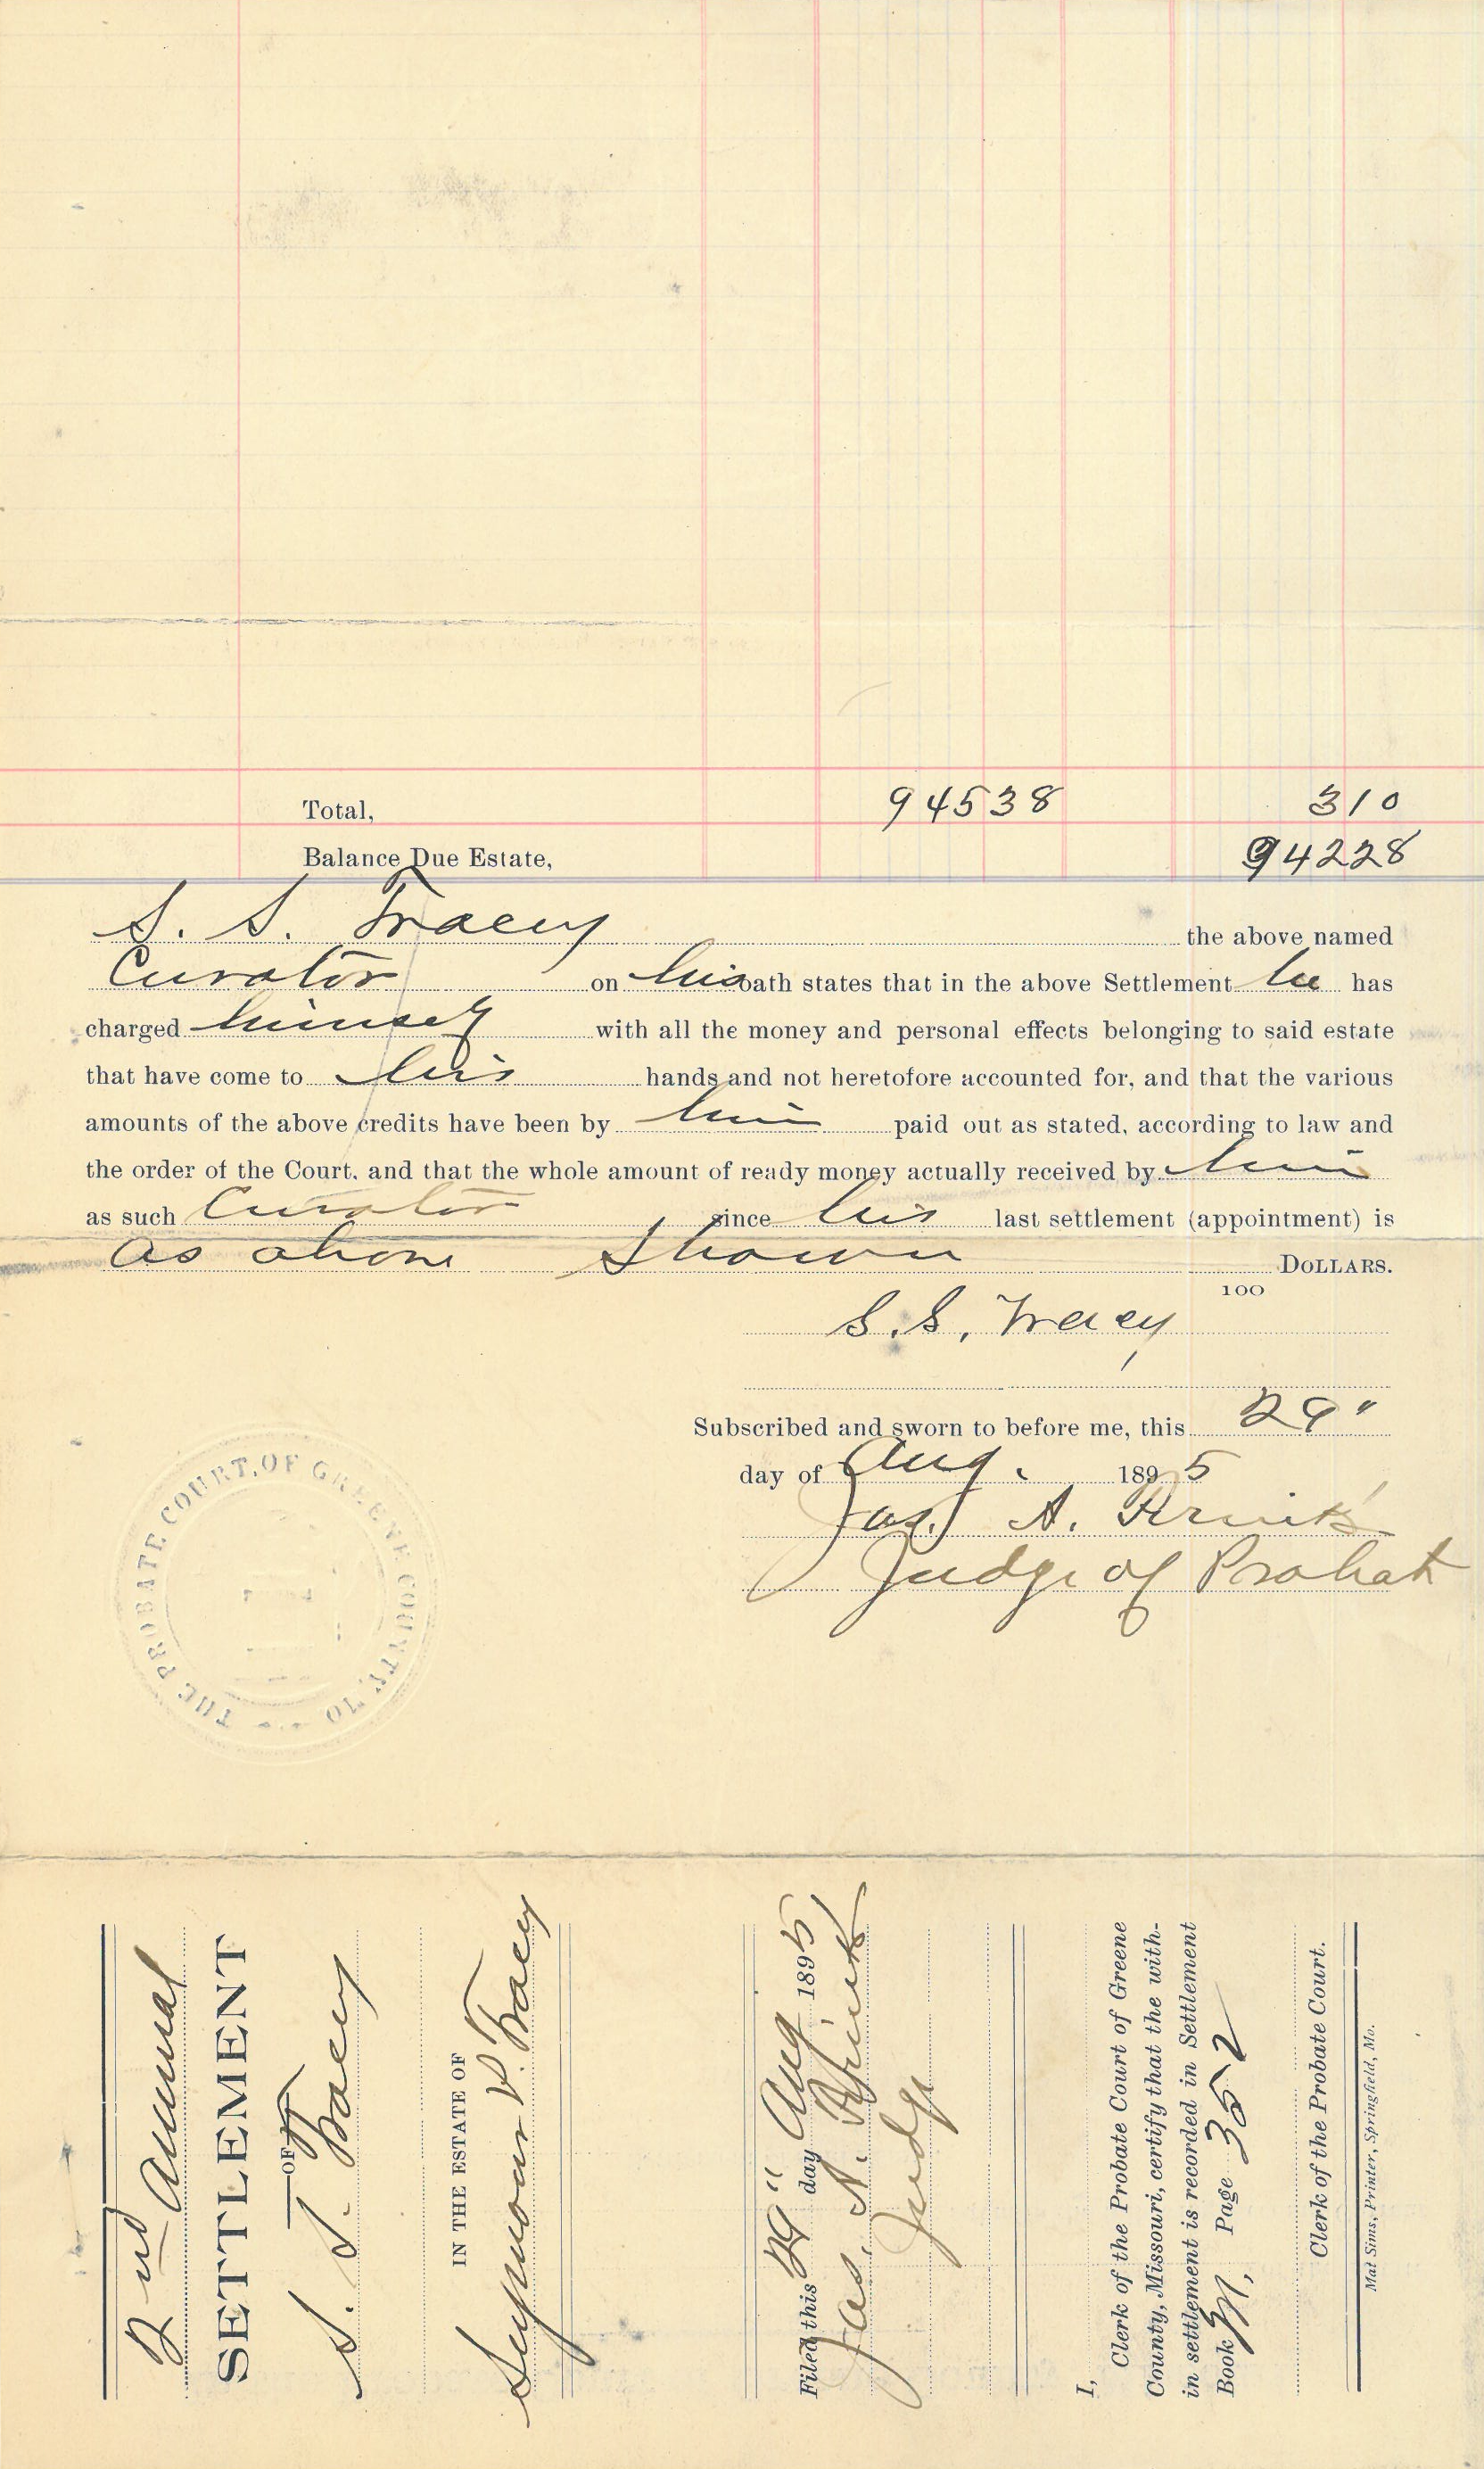 Total, 94538 310
Balance Due Estate, 94228
S. S. Tracey the above named
Curator on his oath states that in the above Settlement he has
charged himself with all the money and personal effects belonging to said estate
that have come to his hands and not heretofore accounted for, and that the various
amounts of the above credits have been by him paid out as stated, according to law and
the order of the Court, and that the whole amount of ready money actually received by him
as such Curator since his last settlement (appointment) is
as above Shown DOLLARS.
100
S. S. Tracey
Subscribed and sworn to before me, this 29"
day of Aug. 1895
Jas. A.
Judge of Probate
THE PROBATE COURT, OF GREENE COUNTY, MO
2nd Annual
SETTLEMENT
OF
S. S. Tracey
IN THE ESTATE OF
Seymour P. Tracey
Filed this 29" day Aug 1895
Jas. A.
Judge
I,
Clerk of the Probate Court of Greene
County, Missouri, certify that the with-
in settlement is recorded in Settlement
Book M, Page 352
Clerk of the Probate Court.
Mat Sims, Printer, Springfield, Mo.